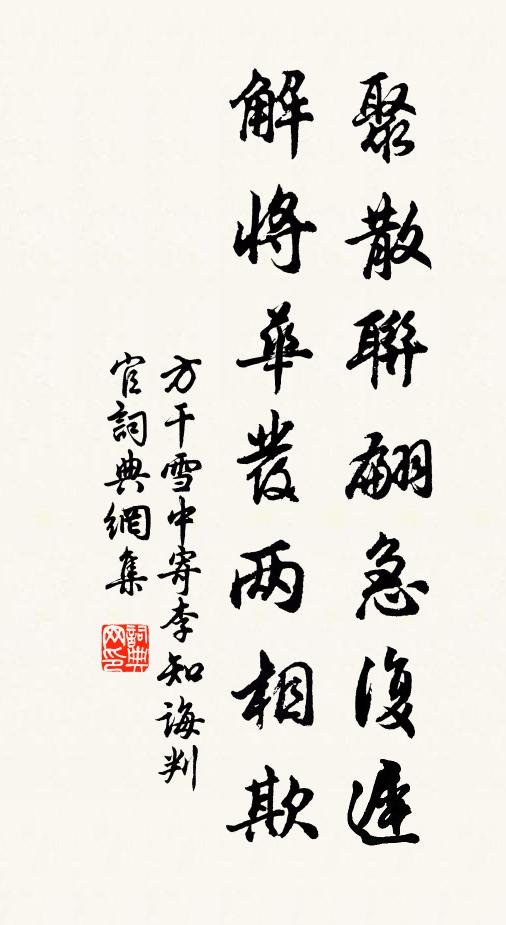 聚散聯翩急復遲
解將華發两相欺
方干雪中寄李知誨判
官詞典網集
詞典
网印